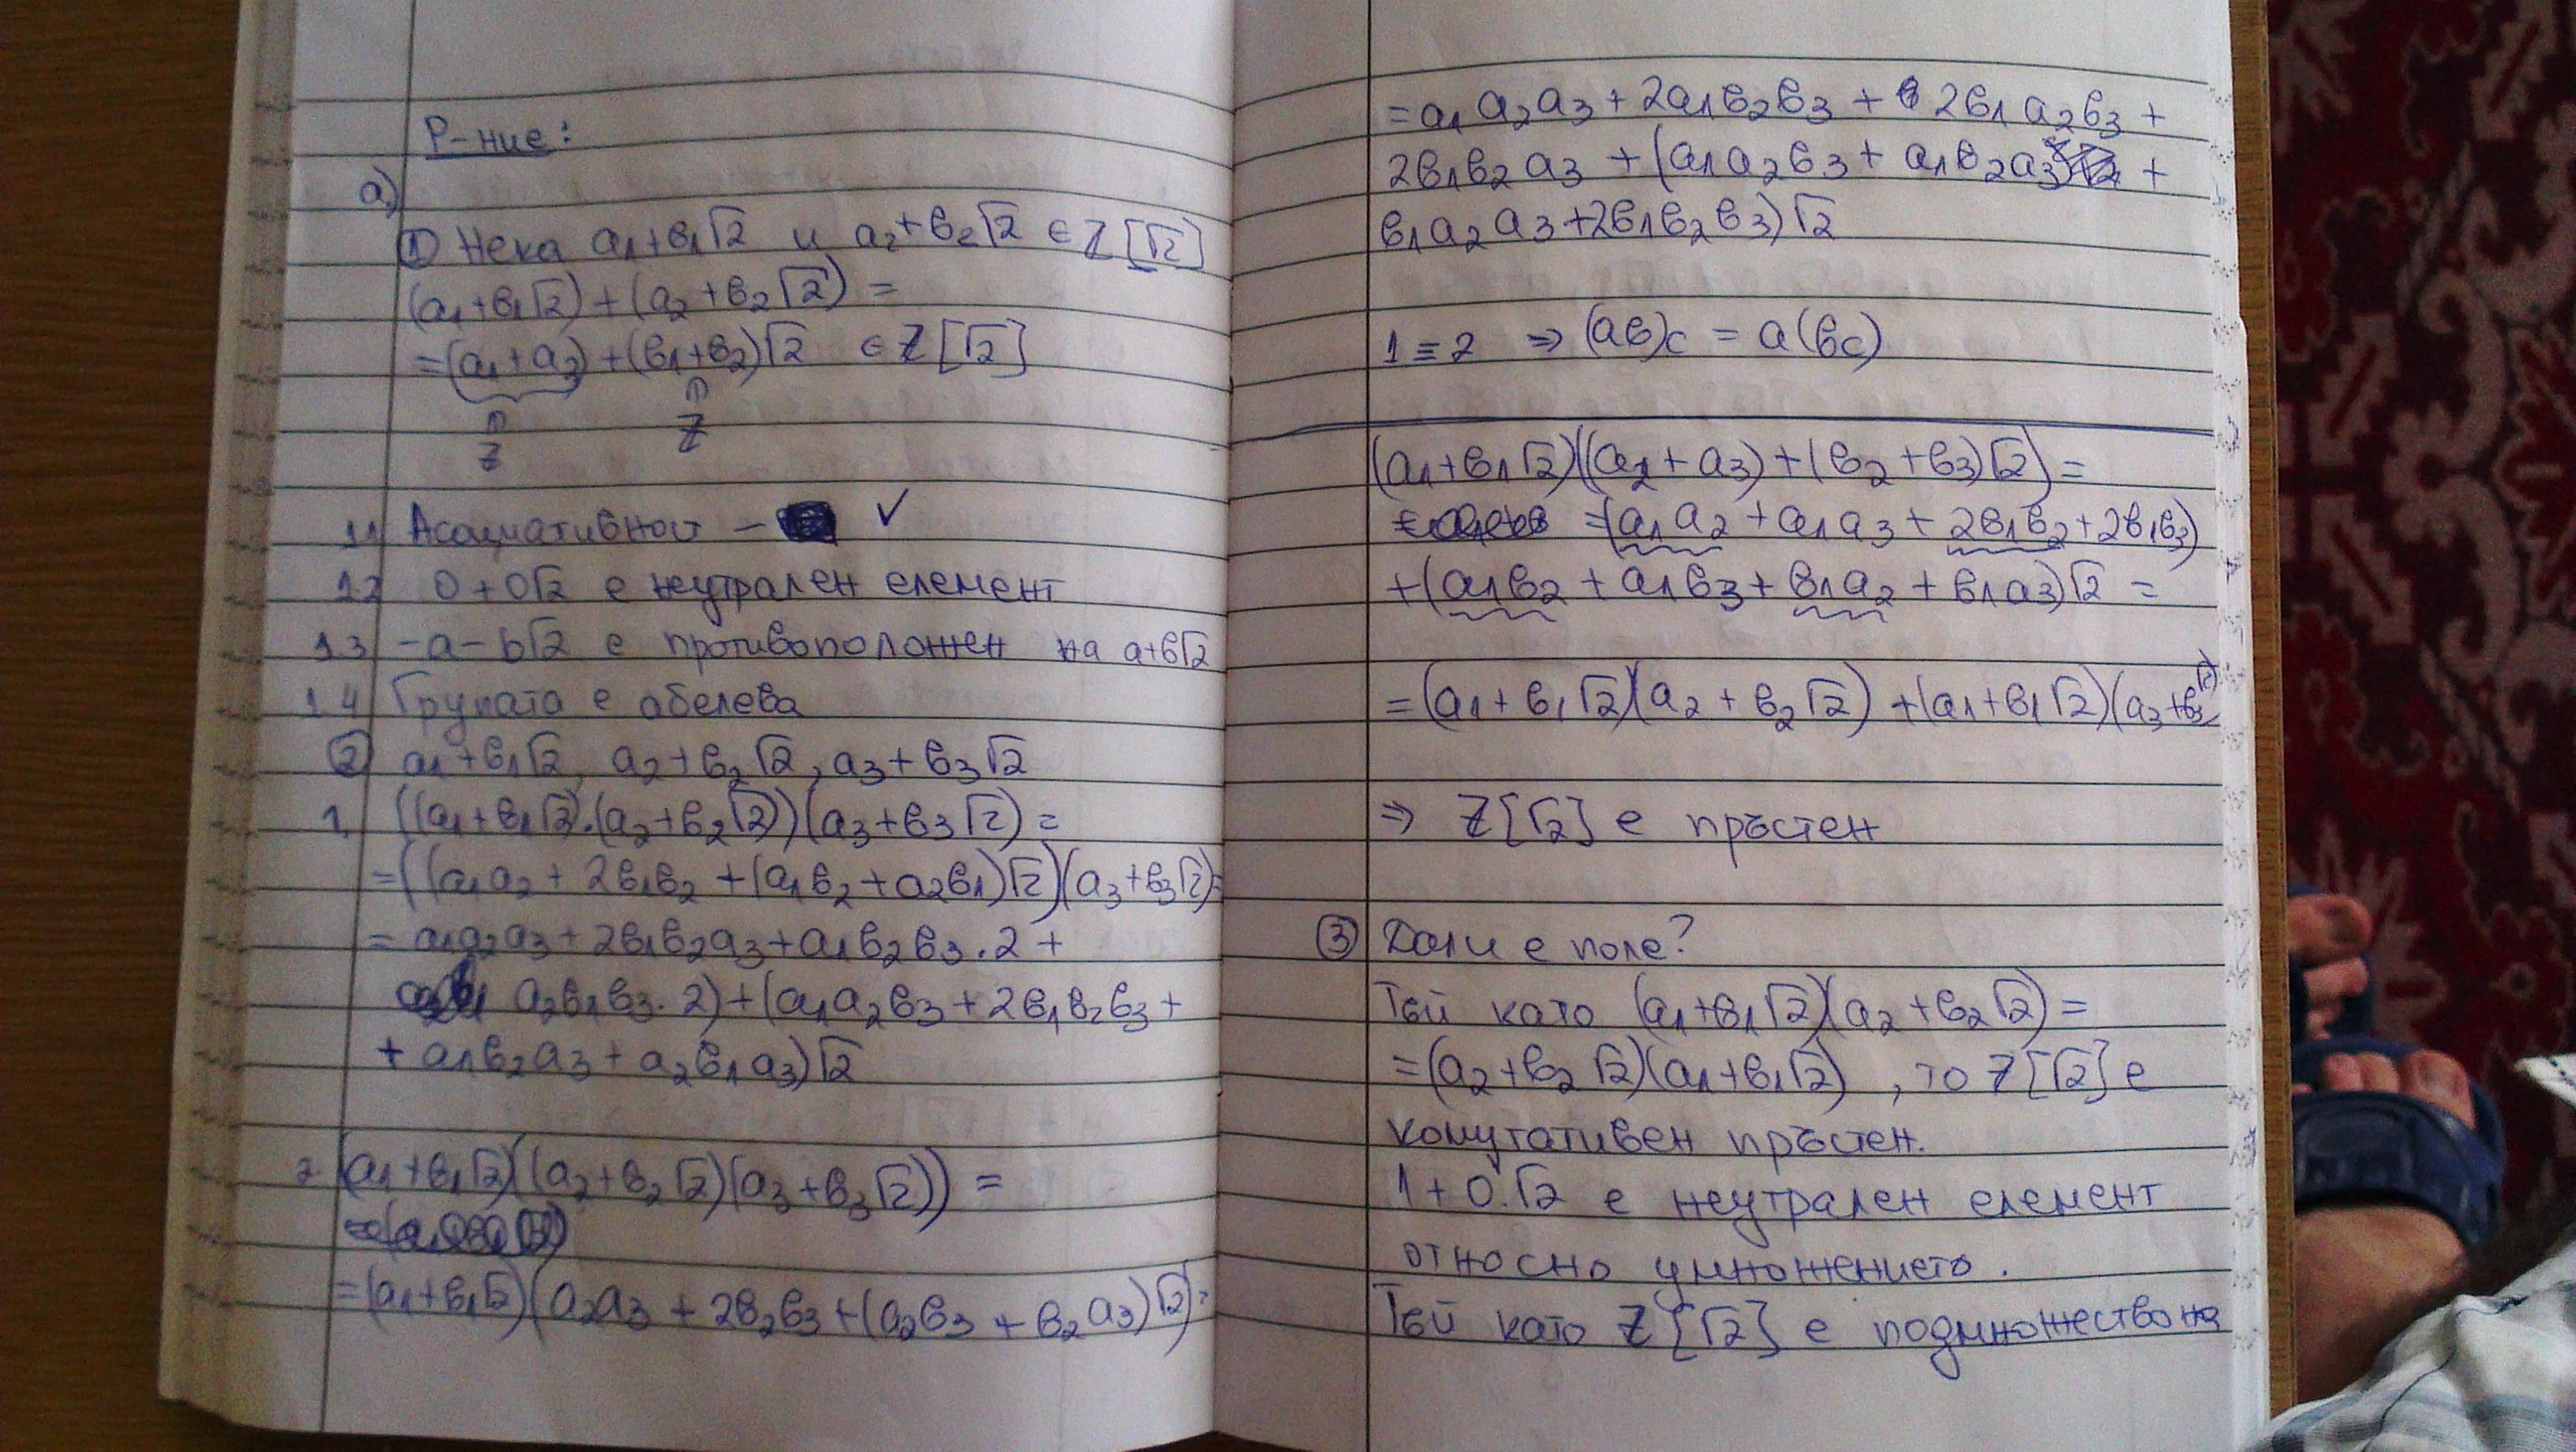 Р-ние:
а)
① Нека a₁+b₁√2 и a₂+b₂√2 ∈ Z[√2]
(a₁+b₁√2)+(a₂+b₂√2) =
=(a₁+a₂)+(b₁+b₂)√2 ∈ Z[√2]
∩ ∩
Z Z
11 Асоциативност - ✓
12 0+0√2 е неутрален елемент
13 -a-b√2 е противоположен на a+b√2
14 Групата е абелева
② a₁+b₁√2, a₂+b₂√2, a₃+b₃√2
1. ((a₁+b₁√2).(a₂+b₂√2))(a₃+b₃√2) =
=((a₁a₂+2b₁b₂+(a₁b₂+a₂b₁)√2)(a₃+b₃√2)=
= a₁a₂a₃+2b₁b₂a₃+a₁b₂b₃.2+
a₂b₁b₃.2)+(a₁a₂b₃+2b₁b₂b₃+
+ a₁b₂a₃+a₂b₁a₃)√2
2. (a₁+b₁√2)((a₂+b₂√2)(a₃+b₃√2)) =
=(a₁+b₁√2)(a₂a₃+2b₂b₃+(a₂b₃+b₂a₃)√2)=
=a₁a₂a₃+2a₁b₂b₃+2b₁a₂b₃+
2b₁b₂a₃+(a₁a₂b₃+a₁b₂a₃+
b₁a₂a₃+2b₁b₂b₃)√2
1≡2 ⇒ (ab)c = a(bc)
(a₁+b₁√2)((a₂+a₃)+(b₂+b₃)√2)=
=(a₁a₂+a₁a₃+2b₁b₂+2b₁b₃)
+(a₁b₂+a₁b₃+b₁a₂+b₁a₃)√2 =
=(a₁+b₁√2)(a₂+b₂√2)+(a₁+b₁√2)(a₃+b₃√2)
⇒ Z[√2] е пръстен
③ Дали е поле?
Тъй като (a₁+b₁√2)(a₂+b₂√2)=
=(a₂+b₂√2)(a₁+b₁√2), то Z[√2] е
комутативен пръстен.
1+0.√2 е неутрален елемент
относно умножението.
Тъй като Z[√2] е подмножество на